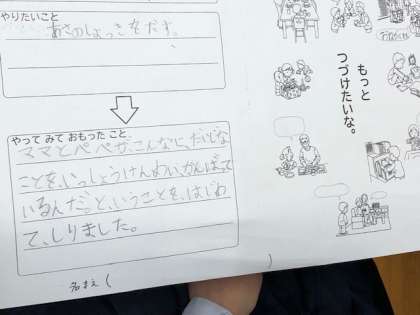 やりたいこと
あさのしょっきをだす。
やって みて おもった こと
ママとペペが、こんなに、だいじな
ことを、いっしょうけんめい、がんばって
いるんだ。と、いうことを、はじめ
て、しりました。
名まえ（　）
もっと
つづけたいな。